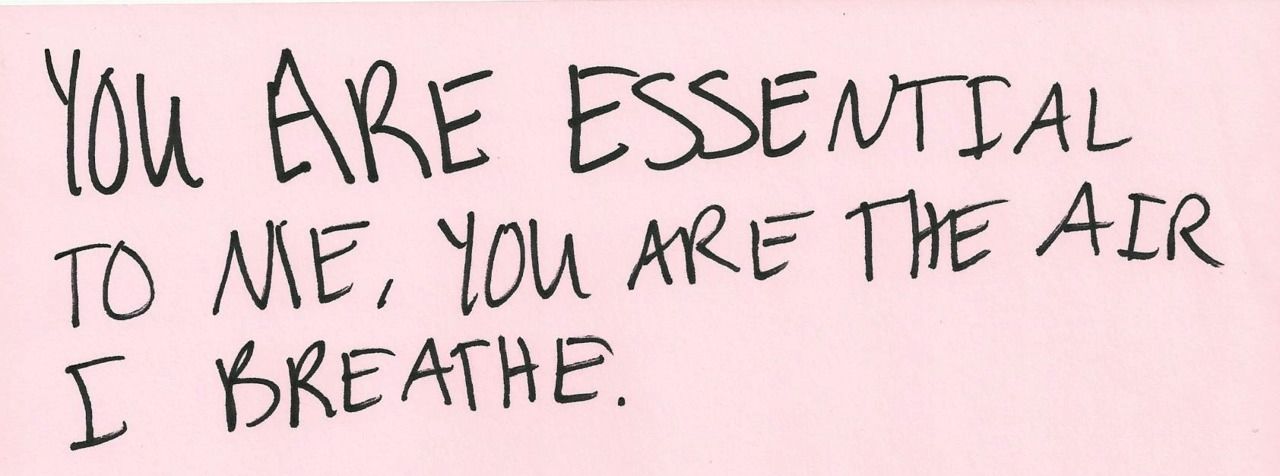 YOU ARE ESSENTIAL
TO ME, YOU ARE THE AIR
I BREATHE.